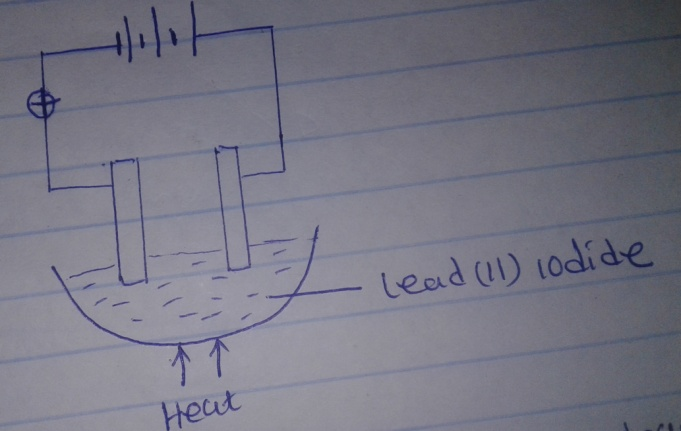 Lead (II) iodide
Heat